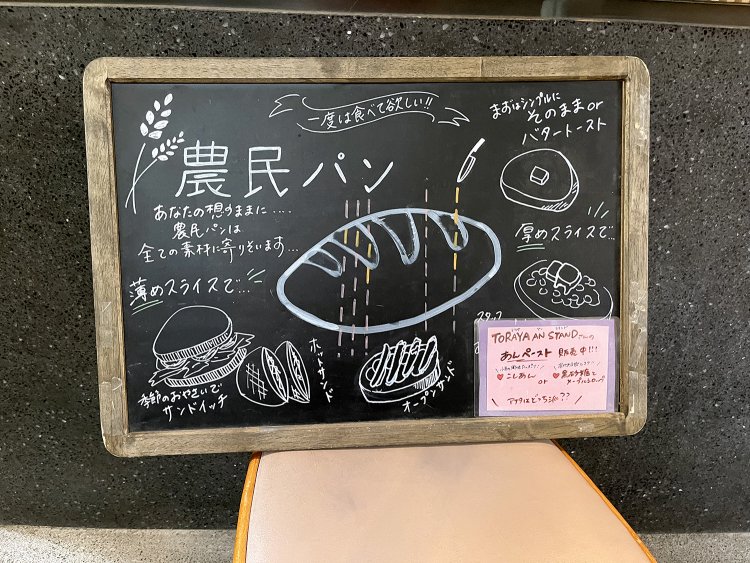 一度は食べて欲しい!!
農民パン
あなたの想うままに....
農民パンは
全ての素材に寄りそいます...
まずはシンプルに
そのまま or
バタートースト
厚めスライスで...
薄めスライスで...
季節のおやさいで
サンドイッチ
ホットサンド
オープンサンド
スタッフ
TORAYA AN STANDさんの
あんペースト 販売中!!!
こしあん
or
黒砂糖と
メープルシロップ
アナタはどっち派??